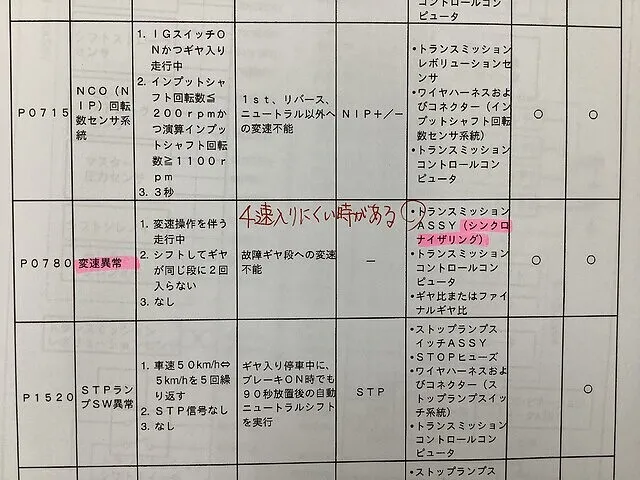 コントロールコン
ピュータ
P0715
NCO（N
IP）回転
数センサ系
統
1. IGスイッチO
Nかつギヤ入り
走行中
2. インプットシャ
フト回転数≦
200rpmか
つ演算インプッ
トシャフト回転
数≧1100r
pm
3. 3秒
1st、リバース、
ニュートラル以外へ
の変速不能
NIP＋/－
•トランスミッション
レボリューションセ
ンサ
•ワイヤハーネスおよ
びコネクター（イン
プットシャフト回転
数センサ系統）
•トランスミッション
コントロールコン
ピュータ
○
○
P0780
変速異常
1. 変速操作を伴う
走行中
2. シフトしてギヤ
が同じ段に2回
入らない
3. なし
4速入りにくい時がある
故障ギヤ段への変速
不能
－
•トランスミッション
ASSY（シンクロ
ナイザリング）
•トランスミッション
コントロールコン
ピュータ
•ギヤ比またはファイ
ナルギヤ比
○
○
P1520
STPラン
プSW異常
1. 車速50km/h⇔
5km/hを5回繰
り返す
2. STP信号なし
3. なし
ギヤ入り停車中に、
ブレーキON時でも
90秒放置後の自動
ニュートラルシフト
を実行
STP
•ストップランプス
イッチASSY
•STOPヒューズ
•ワイヤハーネスおよ
びコネクター（ス
トップランプスイッ
チ系統）
•トランスミッション
コントロールコン
ピュータ
○
•ストップランプス